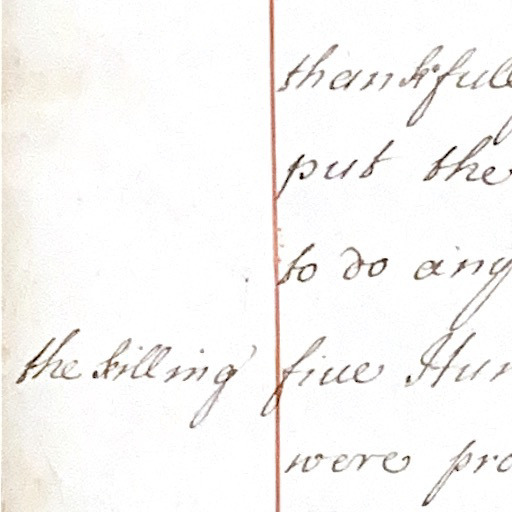 thankfull
put the
to do any
the killing five Hun
were pro